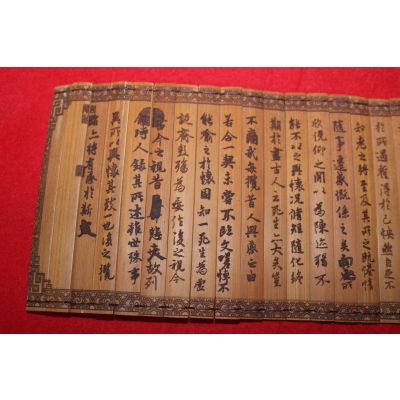 於所遇暫得於己快然自足不
知老之將至及其所之既惓情
隨事遷感慨係之矣向之所
欣俛仰之閒以為陳迹猶不
能不以之興懷況脩短隨化終
期於盡古人云死生亦大矣豈
不痛哉每攬昔人興感之由
若合一契未嘗不臨文嗟悼不
能喻之於懷固知一死生為虛
誕齊彭殤為妄作後之視今
今之視昔悲夫故列
時人錄其所述雖世殊事
異所以興懷其致一也後之攬
將有感於斯文